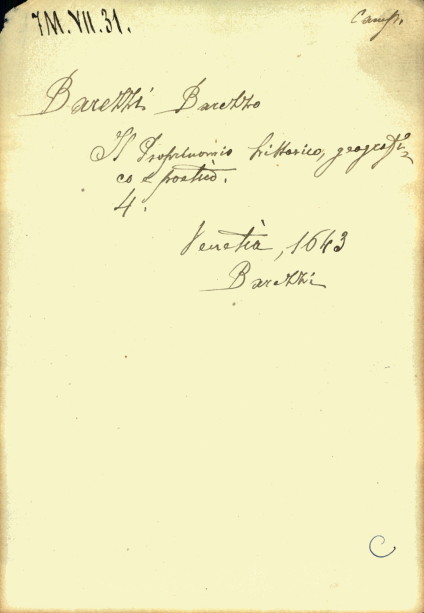 7M.VII.31.
Camp.
Barezzi Barezzo
Il Proprinomio historico, geografi=
co e poetico.
4.
Venetia, 1643
Barezzi
C